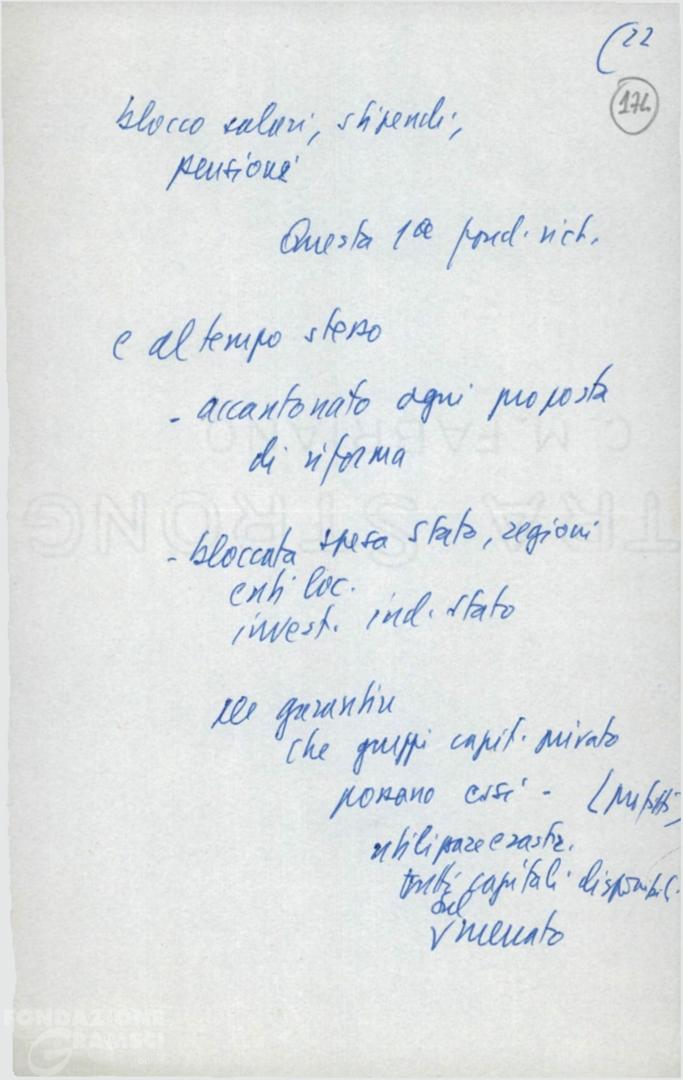 (22
174
blocco salari, stipendi,
pensioni
Questa 1a fond. rich.
e al tempo stesso
- accantonato ogni proposta
di riforma
- bloccata spesa stato, regioni
enti loc.
invest. ind. stato
per garantire
che gruppi capit. privato
possano essi - (
utilizzare
tutti capitali disponibili
sul
mercato
C.M. FABRIANO
EXTRA STRONG
FONDAZIONE
GRAMSCI